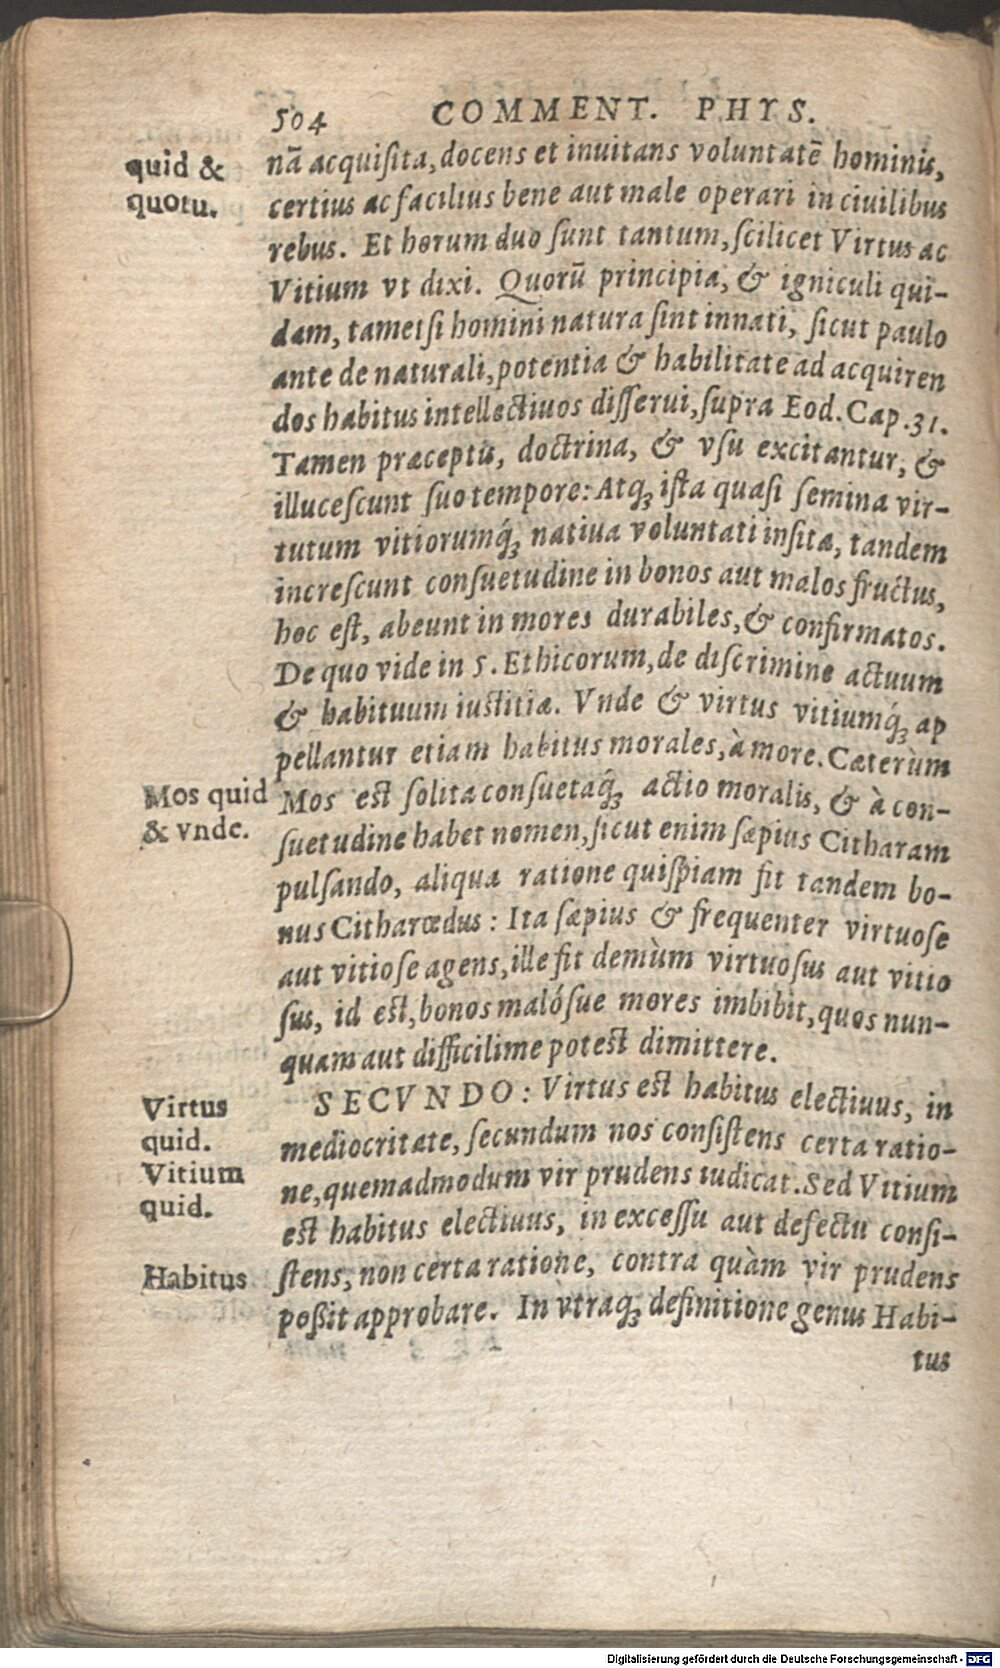 504 COMMENT. PHYS.
quid &
quotu.
nā acquiſita, docens et inuitans voluntatē hominis,
certius ac facilius bene aut male operari in ciuilibus
rebus. Et horum duo ſunt tantum, ſcilicet Virtus ac
Vitium vt dixi. Quorū principia, & igniculi qui-
dam, tametſi homini natura ſint innati, ſicut paulo
ante de naturali, potentia & habilitate ad acquiren
dos habitus intellectiuos diſſerui, ſupra Eod. Cap. 31.
Tamen præceptis, doctrina, & vſu excitantur, &
illuceſcunt ſuo tempore: Atq́ꝫ iſta quaſi ſemina vir-
tutum vitiorumq́ꝫ natiua voluntati inſita, tandem
increſcunt conſuetudine in bonos aut malos fructus,
hoc eſt, abeunt in mores durabiles, & confirmatos.
De quo vide in 5. Ethicorum, de diſcrimine actuum
& habituum iuſtitiæ. Vnde & virtus vitiumq́ꝫ ap
pellantur etiam habitus morales, à more. Cæterùm
Mos quid
& vnde.
Mos eſt ſolita conſuetaq́ꝫ actio moralis, & à con-
ſuetudine habet nomen, ſicut enim ſæpius Citharam
pulſando, aliqua ratione quiſpiam fit tandem bo-
nus Citharœdus: Ita ſæpius & frequenter virtuoſe
aut vitioſe agens, ille fit demùm virtuoſus aut vitio
ſus, id eſt, bonos malóſue mores imbibit, quos nun-
quam aut difficilime poteſt dimittere.
SECVNDO: Virtus eſt habitus electiuus, in
Virtus
quid.
Vitium
quid.
mediocritate, ſecundum nos conſiſtens certa ratio-
ne, quemadmodum vir prudens iudicat. Sed Vitium
eſt habitus electiuus, in exceſſu aut defectu conſi-
Habitus
ſtens, non certa ratione, contra quàm vir prudens
poßit approbare. In vtraqꝫ definitione genus Habi-
tus
Digitalisierung gefördert durch die Deutsche Forschungsgemeinschaft - DFG